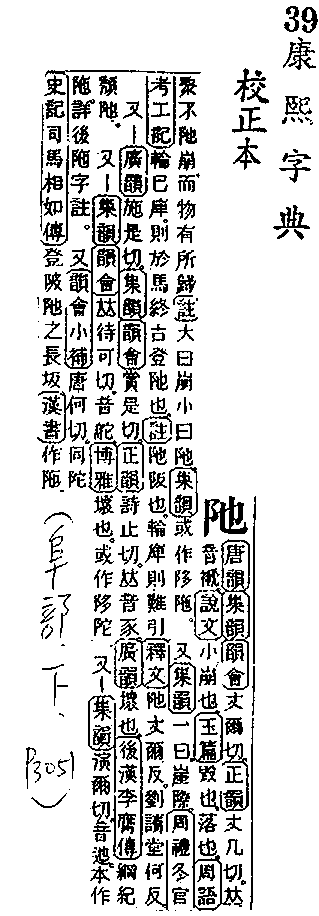 39
康熙字典
校正本
阤
唐韻集韻韻會丈爾切正韻丈几切𠀤
音褫說文小崩也玉篇毀也落也周語
聚不阤崩而物有所歸註大曰崩小曰阤集韻或作陊陁。又集韻一曰崖際周禮冬官
考工記輪已庳則於馬終古登阤也註阤阪也輪庳則難引釋文阤丈爾反劉讀堂何反
又｜廣韻施是切集韻韻會賞是切正韻詩止切𠀤音豕廣韻壞也後漢李膺傳綱紀
頹阤 又｜集韻韻會𠀤待可切音舵博雅壞也或作陊陀 又｜集韻演爾切音迆本作
陁詳後陁字註。又韻會小補唐何切同陀
史記司馬相如傳登陂阤之長坂漢書作陁
(阜部、下、P3051)